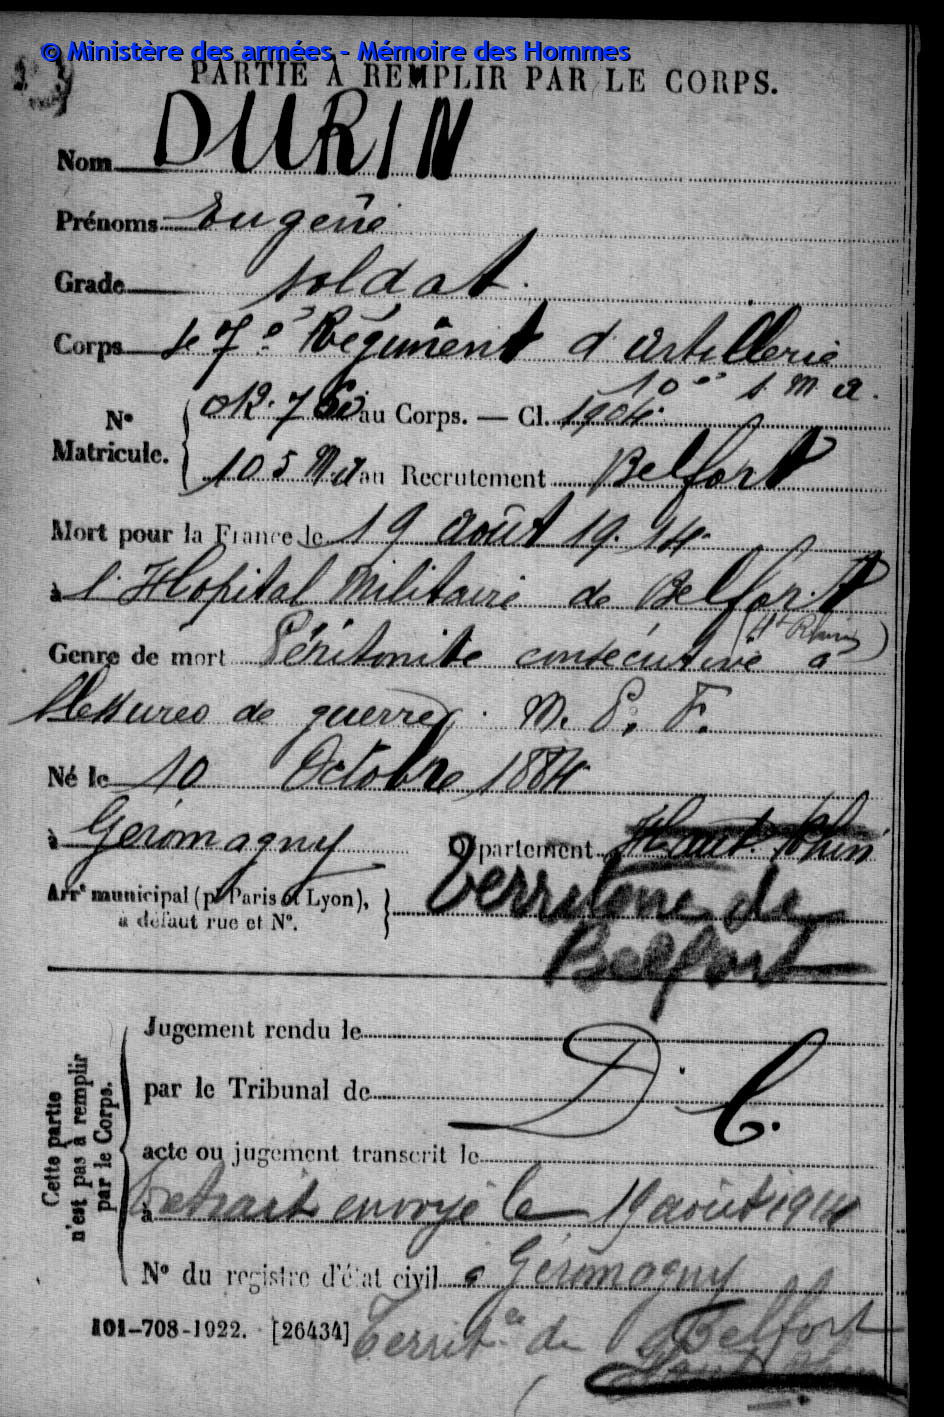 © Ministère des armées - Mémoire des Hommes
PARTIE À REMPLIR PAR LE CORPS.
Nom DURIN
Prénoms Eugène
Grade soldat.
Corps 7e Régiment d'Artillerie
N° Matricule. au Corps. — Cl. 1904.
105 au Recrutement Belfort
Mort pour la France le 19 août 1914.
à l'Hopital Militaire de Belfort
(Ht Rhin)
Genre de mort Péritonite consécutive à
blessures de guerre. M. P. F.
Né le 10 Octobre 1884
à Géromagny Département Haut-Rhin
Arrt municipal (pr Paris et Lyon), à défaut rue et N°. Territoire de
Belfort
Cette partie n'est pas à remplir par le Corps.
Jugement rendu le
par le Tribunal de D. C.
acte ou jugement transcrit le
à Extrait envoyé le 19 août 1914
N° du registre d'état civil à Géromagny
101-708-1922. [26434] Territre de Belfort
Haut Rhin